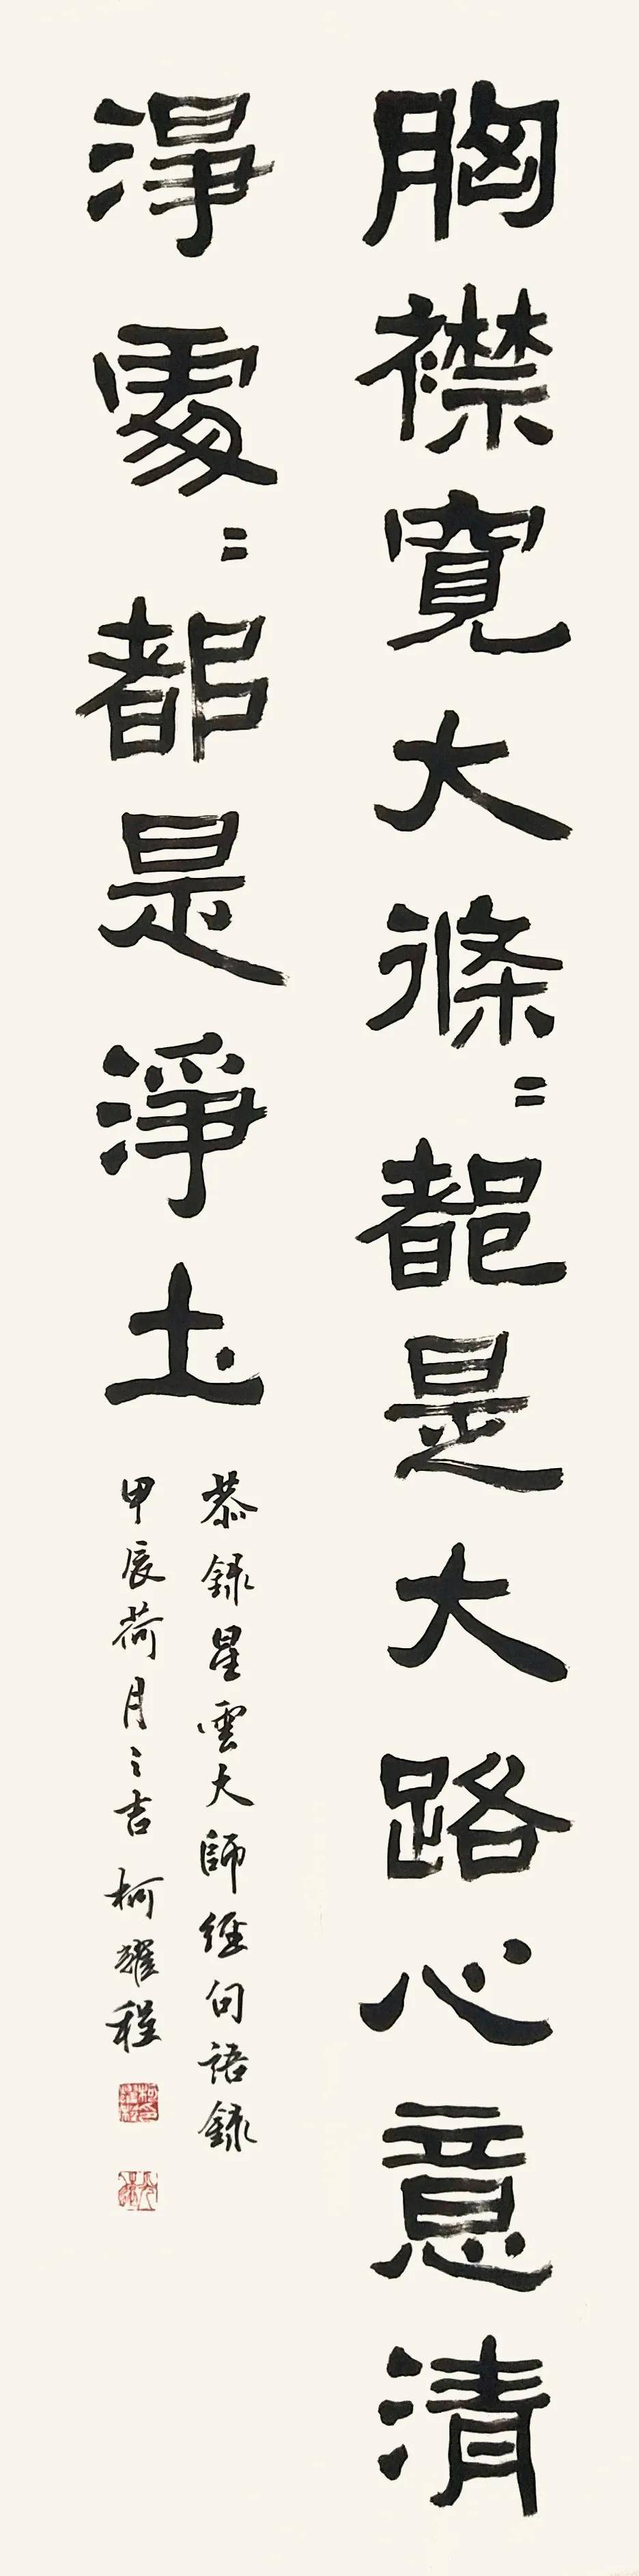 胸襟寬大條〻都是大路心意清
淨處〻都是淨土
恭録星雲大師經句語録
甲辰荷月之吉 柯耀程